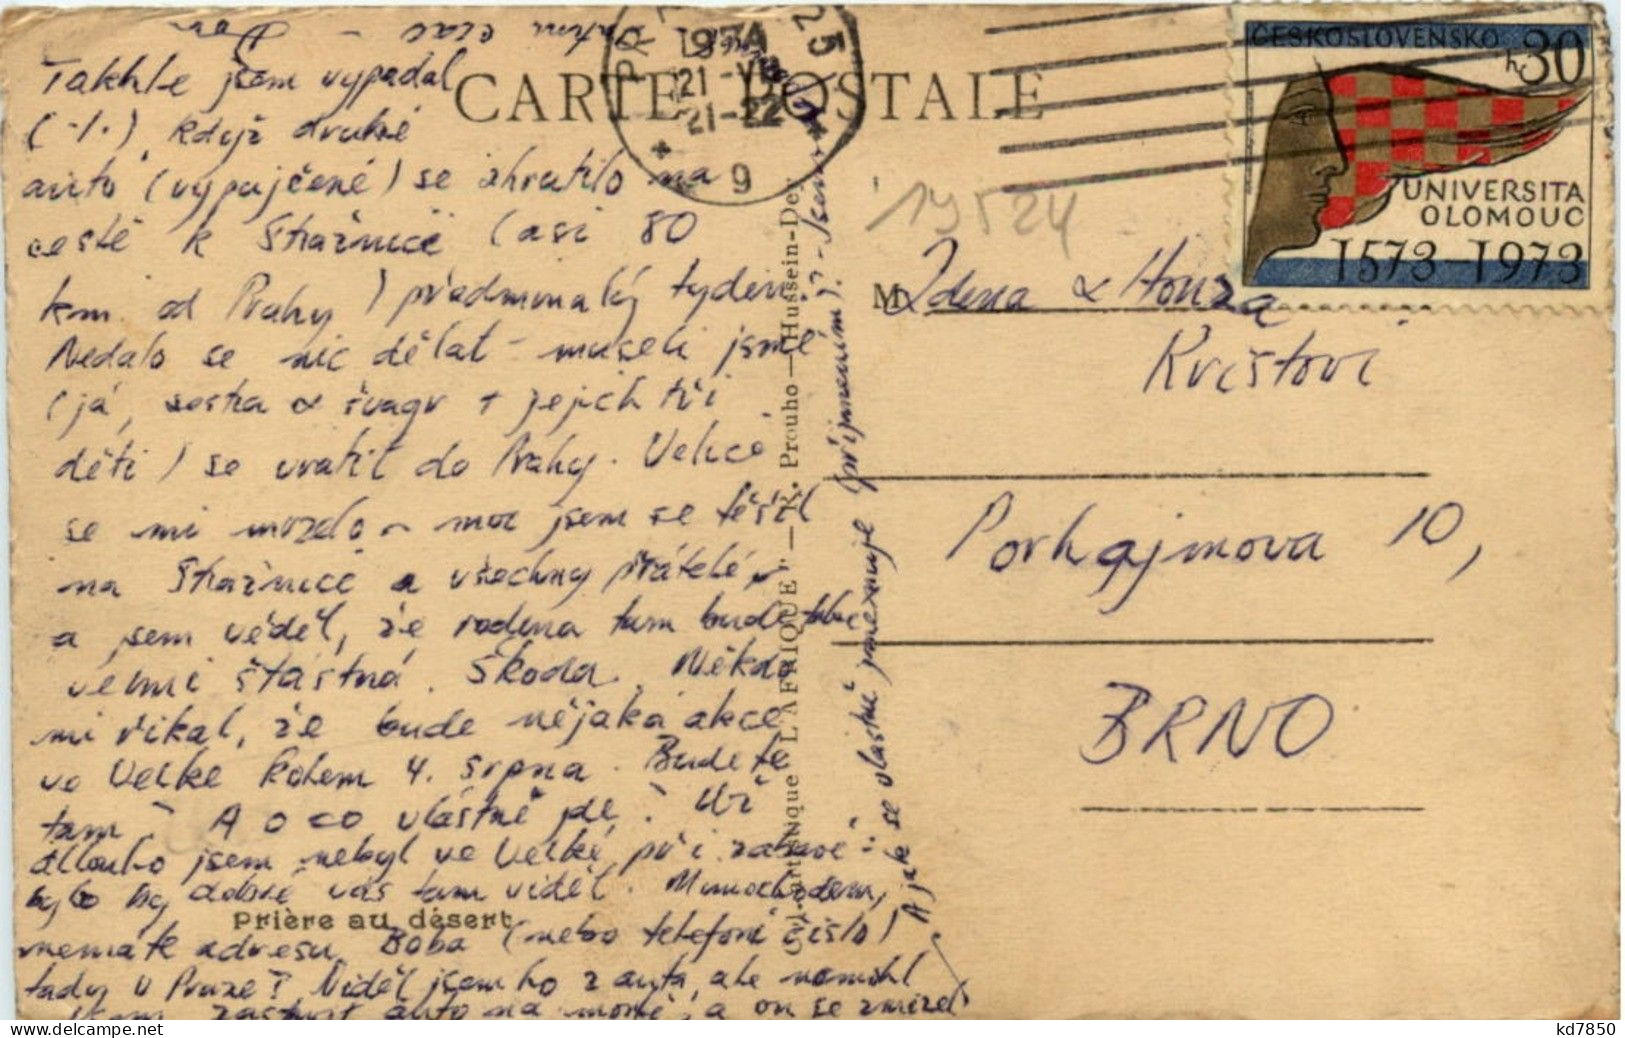 Takhle jsem vypadal
(-1.), když druhé
auto (vypůjčené) se zhroutilo na
cestě k Strážnici (asi 80
km od Prahy) předminulý týden.
Nedalo se nic dělat - museli jsme
(já, sestra & švagr + jejich tři
děti) se vrátit do Prahy. Velice
se mi mrzelo - moc jsem se těšil
na Strážnici a všechny přátelé,
a jsem věděl, že rodina tam bude
velmi šťastná. Škoda. Někdo
mi řikal, že bude nějaká akce
ve Velké kolem 4. srpna. Budete
tam? A o co vlástně jde? Už
dlouho jsem nebyl ve Velké při zábavě -
bylo by dobré vás tam viděl. Mimochodem,
nemáte adresu Boba (nebo telefoní číslo)
tady v Praze? Viděl jsem ho z auta, ale nemohl
jsem zastavit auto na mostě, a on se zmizel.
A jak se vlastně jmenuje (příjmením)? - Jsem
CARTE POSTALE
1974
21-22
9
25
ČESKOSLOVENSKO
30 h
UNIVERSITA
OLOMOUC
1573-1973
19524
M
Zdena & Honza
Kvištovi
Porhajmova 10,
BRNO
Prière au désert
Collection Artistique "L'AFRIQUE" — R. Prouho — Hussein-Dey